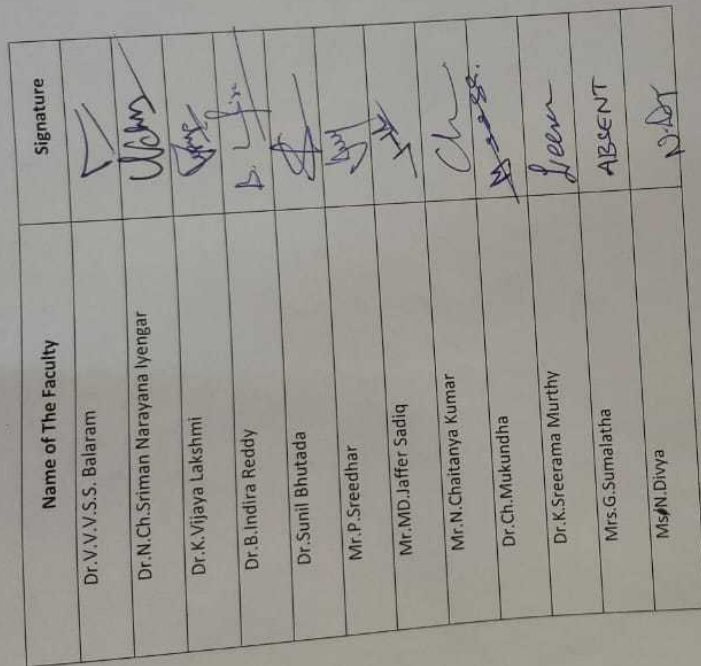 Name of The Faculty Signature
Dr.V.V.V.S.S. Balaram
Dr.N.Ch.Sriman Narayana Iyengar
Dr.K.Vijaya Lakshmi
Dr.B.Indira Reddy
Dr.Sunil Bhutada
Mr.P.Sreedhar
Mr.MD.Jaffer Sadiq
Mr.N.Chaitanya Kumar Ch
Dr.Ch.Mukundha
Dr.K.Sreerama Murthy
Mrs.G.Sumalatha ABSENT
Ms.N.Divya